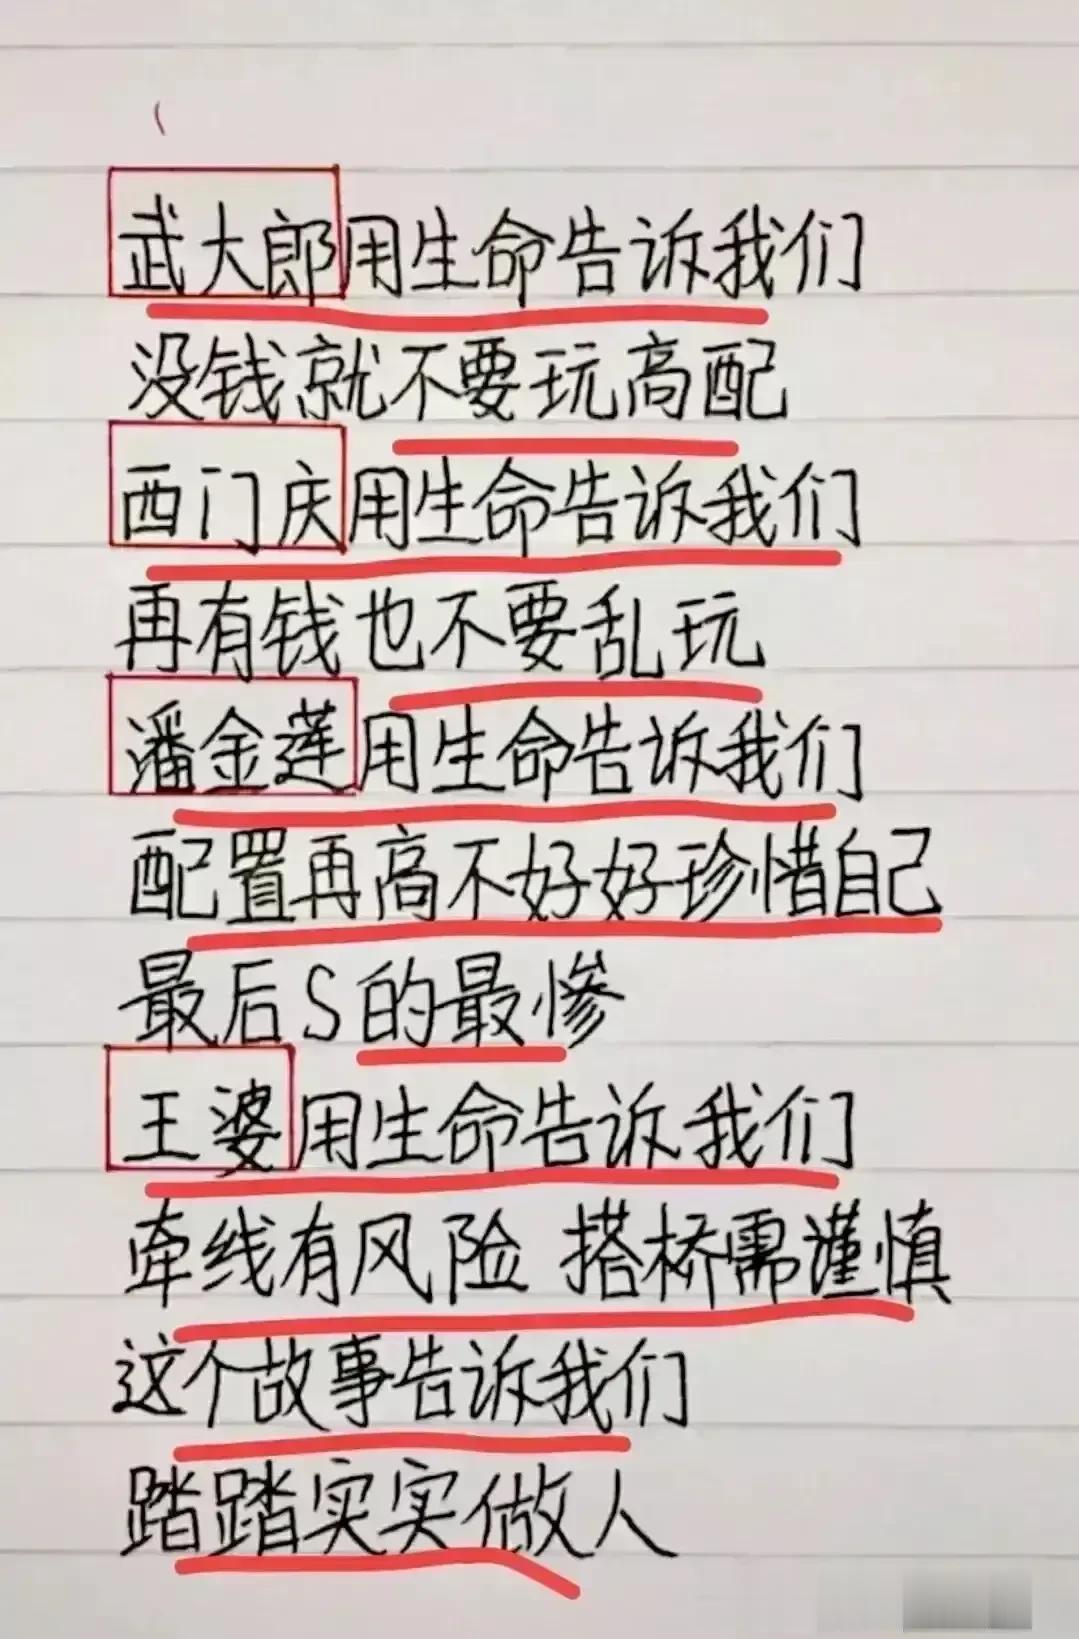 武大郎用生命告诉我们
没钱就不要玩高配
西门庆用生命告诉我们
再有钱也不要乱玩
潘金莲用生命告诉我们
配置再高不好好珍惜自己
最后S的最惨
王婆用生命告诉我们
牵线有风险 搭桥需谨慎
这个故事告诉我们
踏踏实实做人